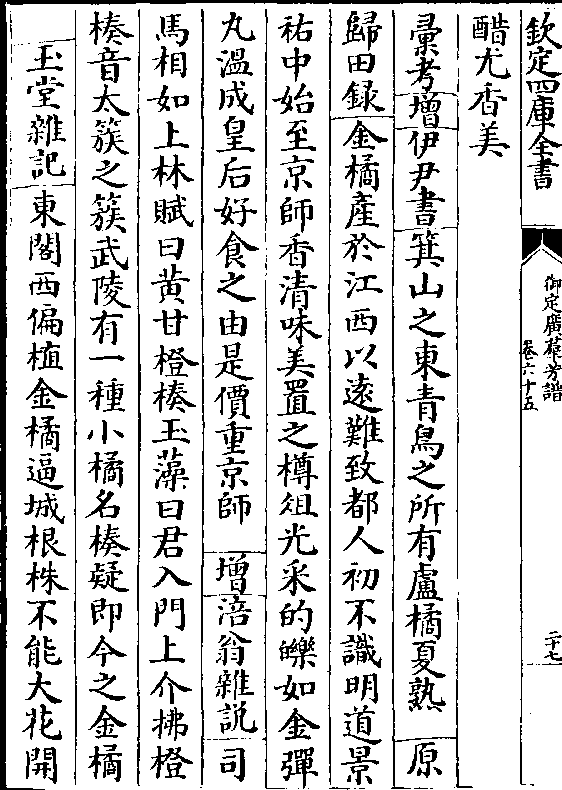 欽定四庫全書
御定廣羣芳譜
卷六十五
二十七
醋尤香美
彚考增伊尹書箕山之東青鳥之所有盧橘夏熟 原
歸田録金橘產於江西以遠難致都人初不識明道景
祐中始至京師香清味美置之樽俎光采的皪如金彈
丸溫成皇后好食之由是價重京師 增涪翁雜説司
馬相如上林賦曰黄甘橙楱玉藻曰君入門上介拂橙
楱音太簇之簇武陵有一種小橘名楱疑即今之金橘
玉堂雜記東閣西偏植金橘逼城根株不能大花開